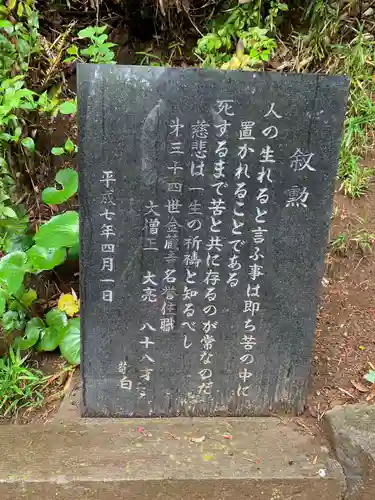 叙勲
人の生れると言ふ事は即ち苦の中に
置かれることである
死するまで苦と共に存るのが常なのだ
慈悲は一生の祈祷と知るべし
第三十四世金蔵寺名誉住職
大僧正 大亮 八十八才
平成七年四月一日
敬白